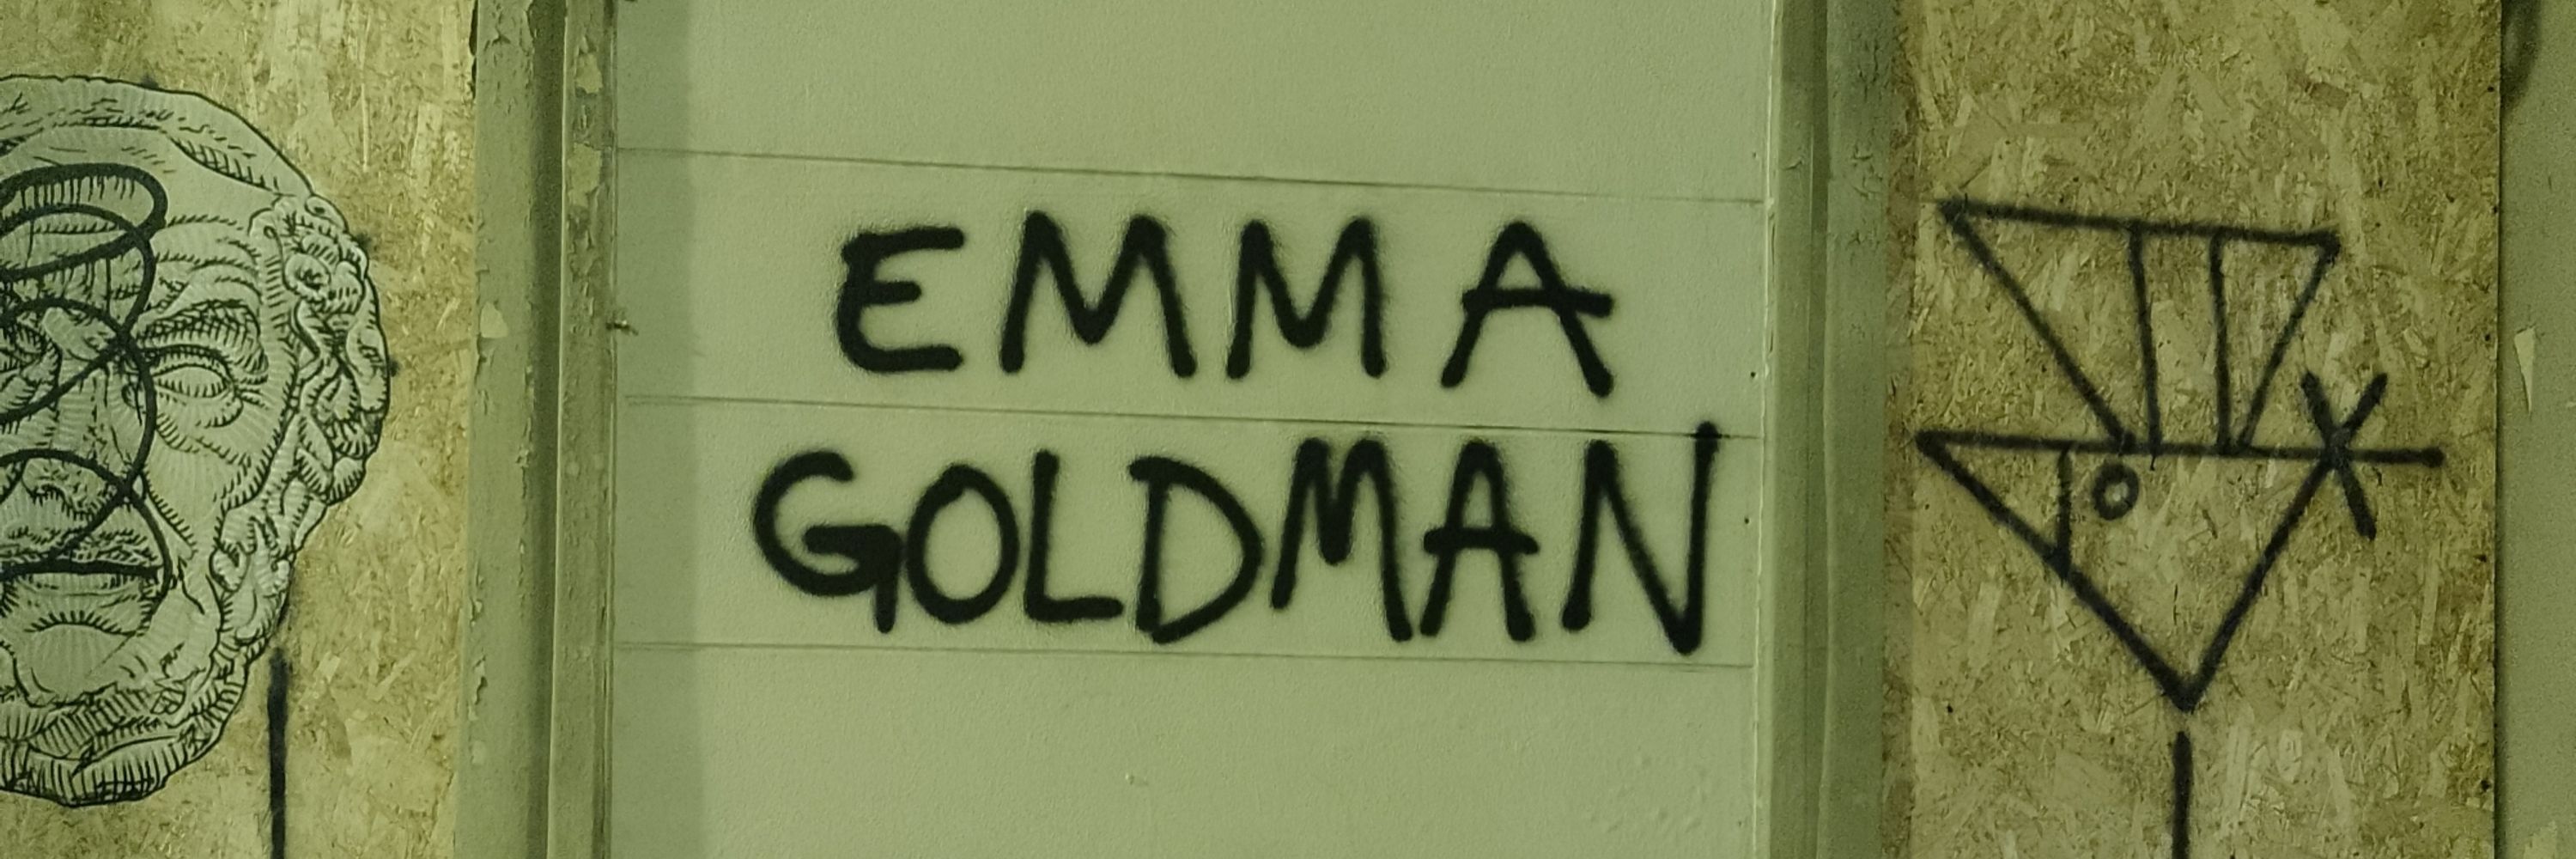 EMMA
GOLDMAN